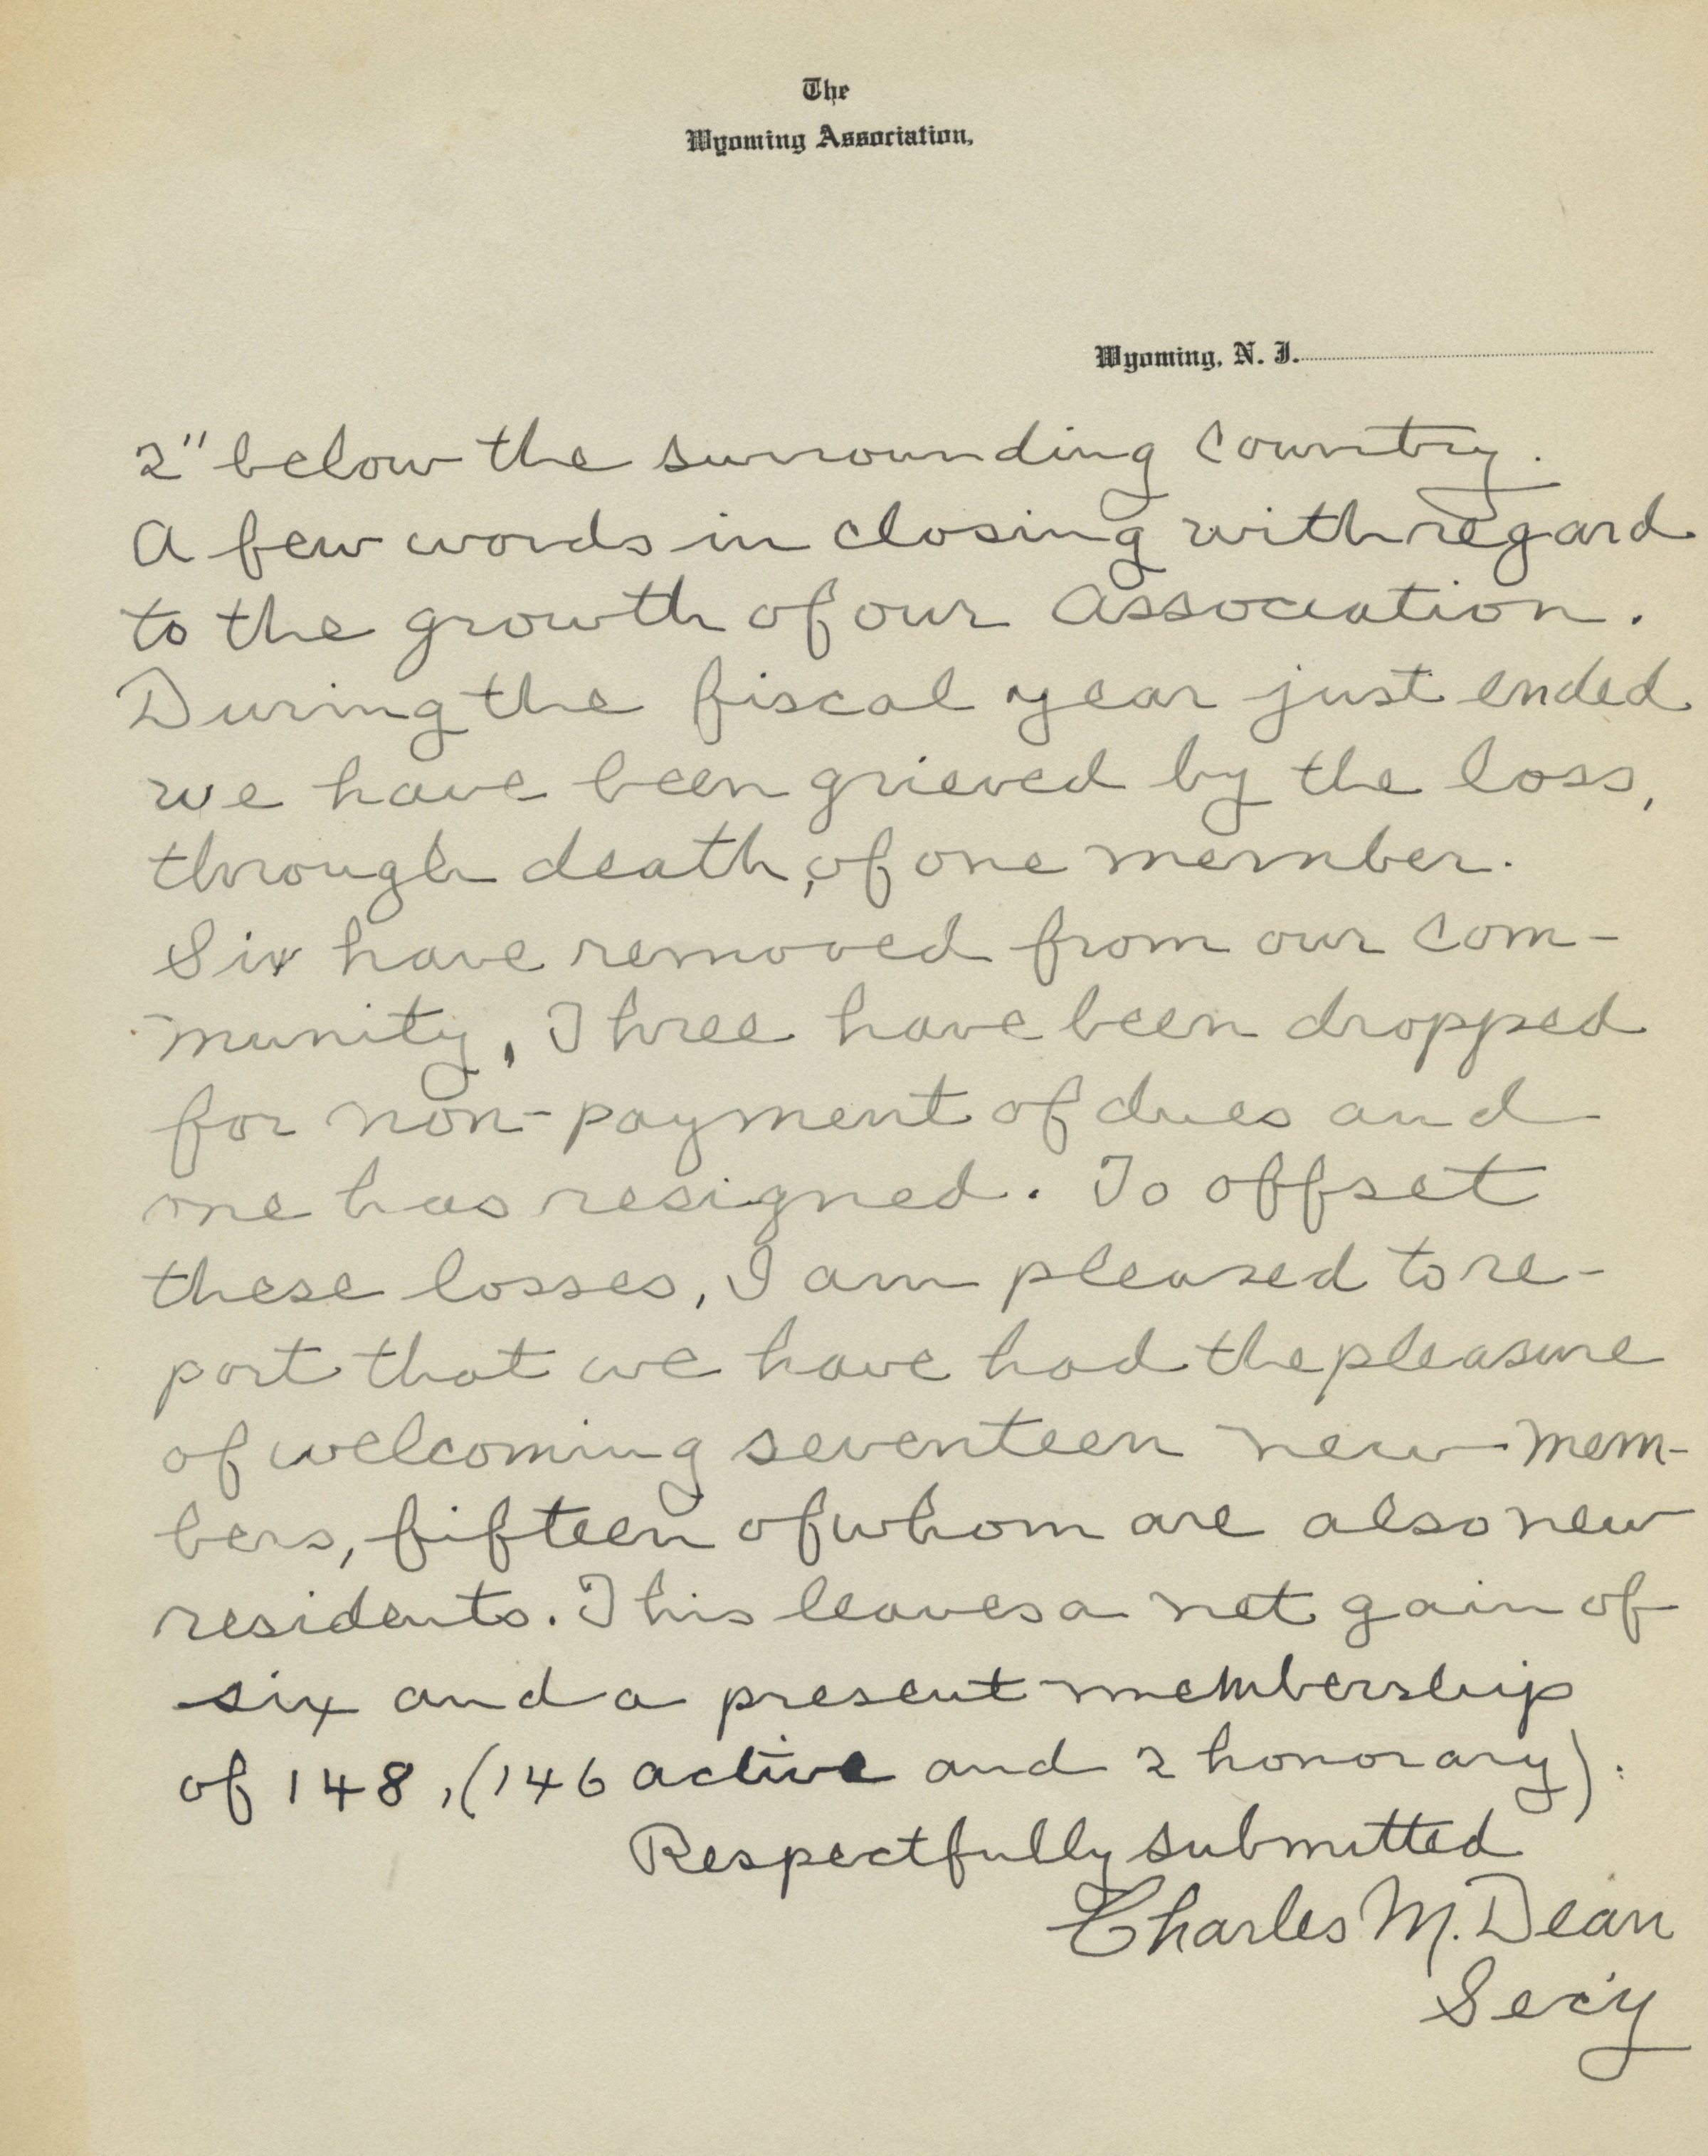 The
Wyoming Association,
Wyoming, N. J.
2" below the surrounding country.
A few words in closing with regard
to the growth of our Association.
During the fiscal year just ended
we have been grieved by the loss,
through death, of one member.
Six have removed from our com-
munity, Three have been dropped
for non-payment of dues and
one has resigned. To offset
these losses, I am pleased to re-
port that we have had the pleasure
of welcoming seventeen new mem-
bers, fifteen of whom are also new
residents. This leaves a net gain of
six and a present membership
of 148, (146 active and 2 honorary).
Respectfully submitted
Charles M. Dean
Sec'y